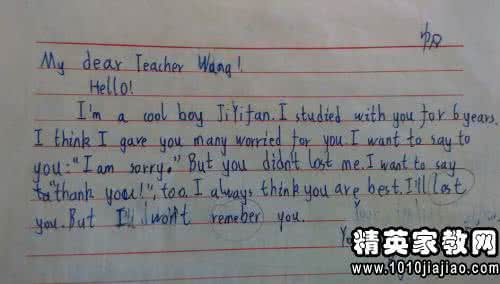 My dear Teacher Wang!
Hello!
I'm a cool boy JiYifan. I studied with you for 6 years.
I think I gave you many worried for you. I want to say to
you: "I am sorry." But you didn't lost me. I want to say
"thank you!", too. I always think you are best. I'll lost
you. But I'll won't remeber you.
精英家教网
www.1010jiajiao.com